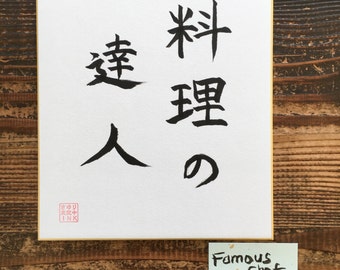 料理の
達人
Famous
Chef